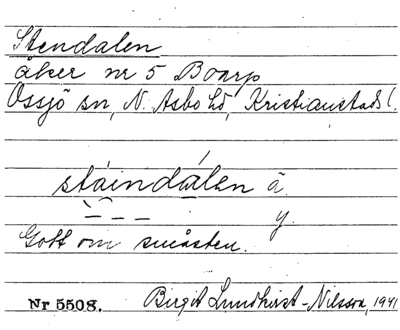 Stendalen
åker nr 5 Boarp
Össjö sn, N. Åsbo hd, Kristianstads l.
stáindálen ä.
y.
Gott om småsten.
Nr 5508. Birgit Lundkvist-Nilsson, 1941